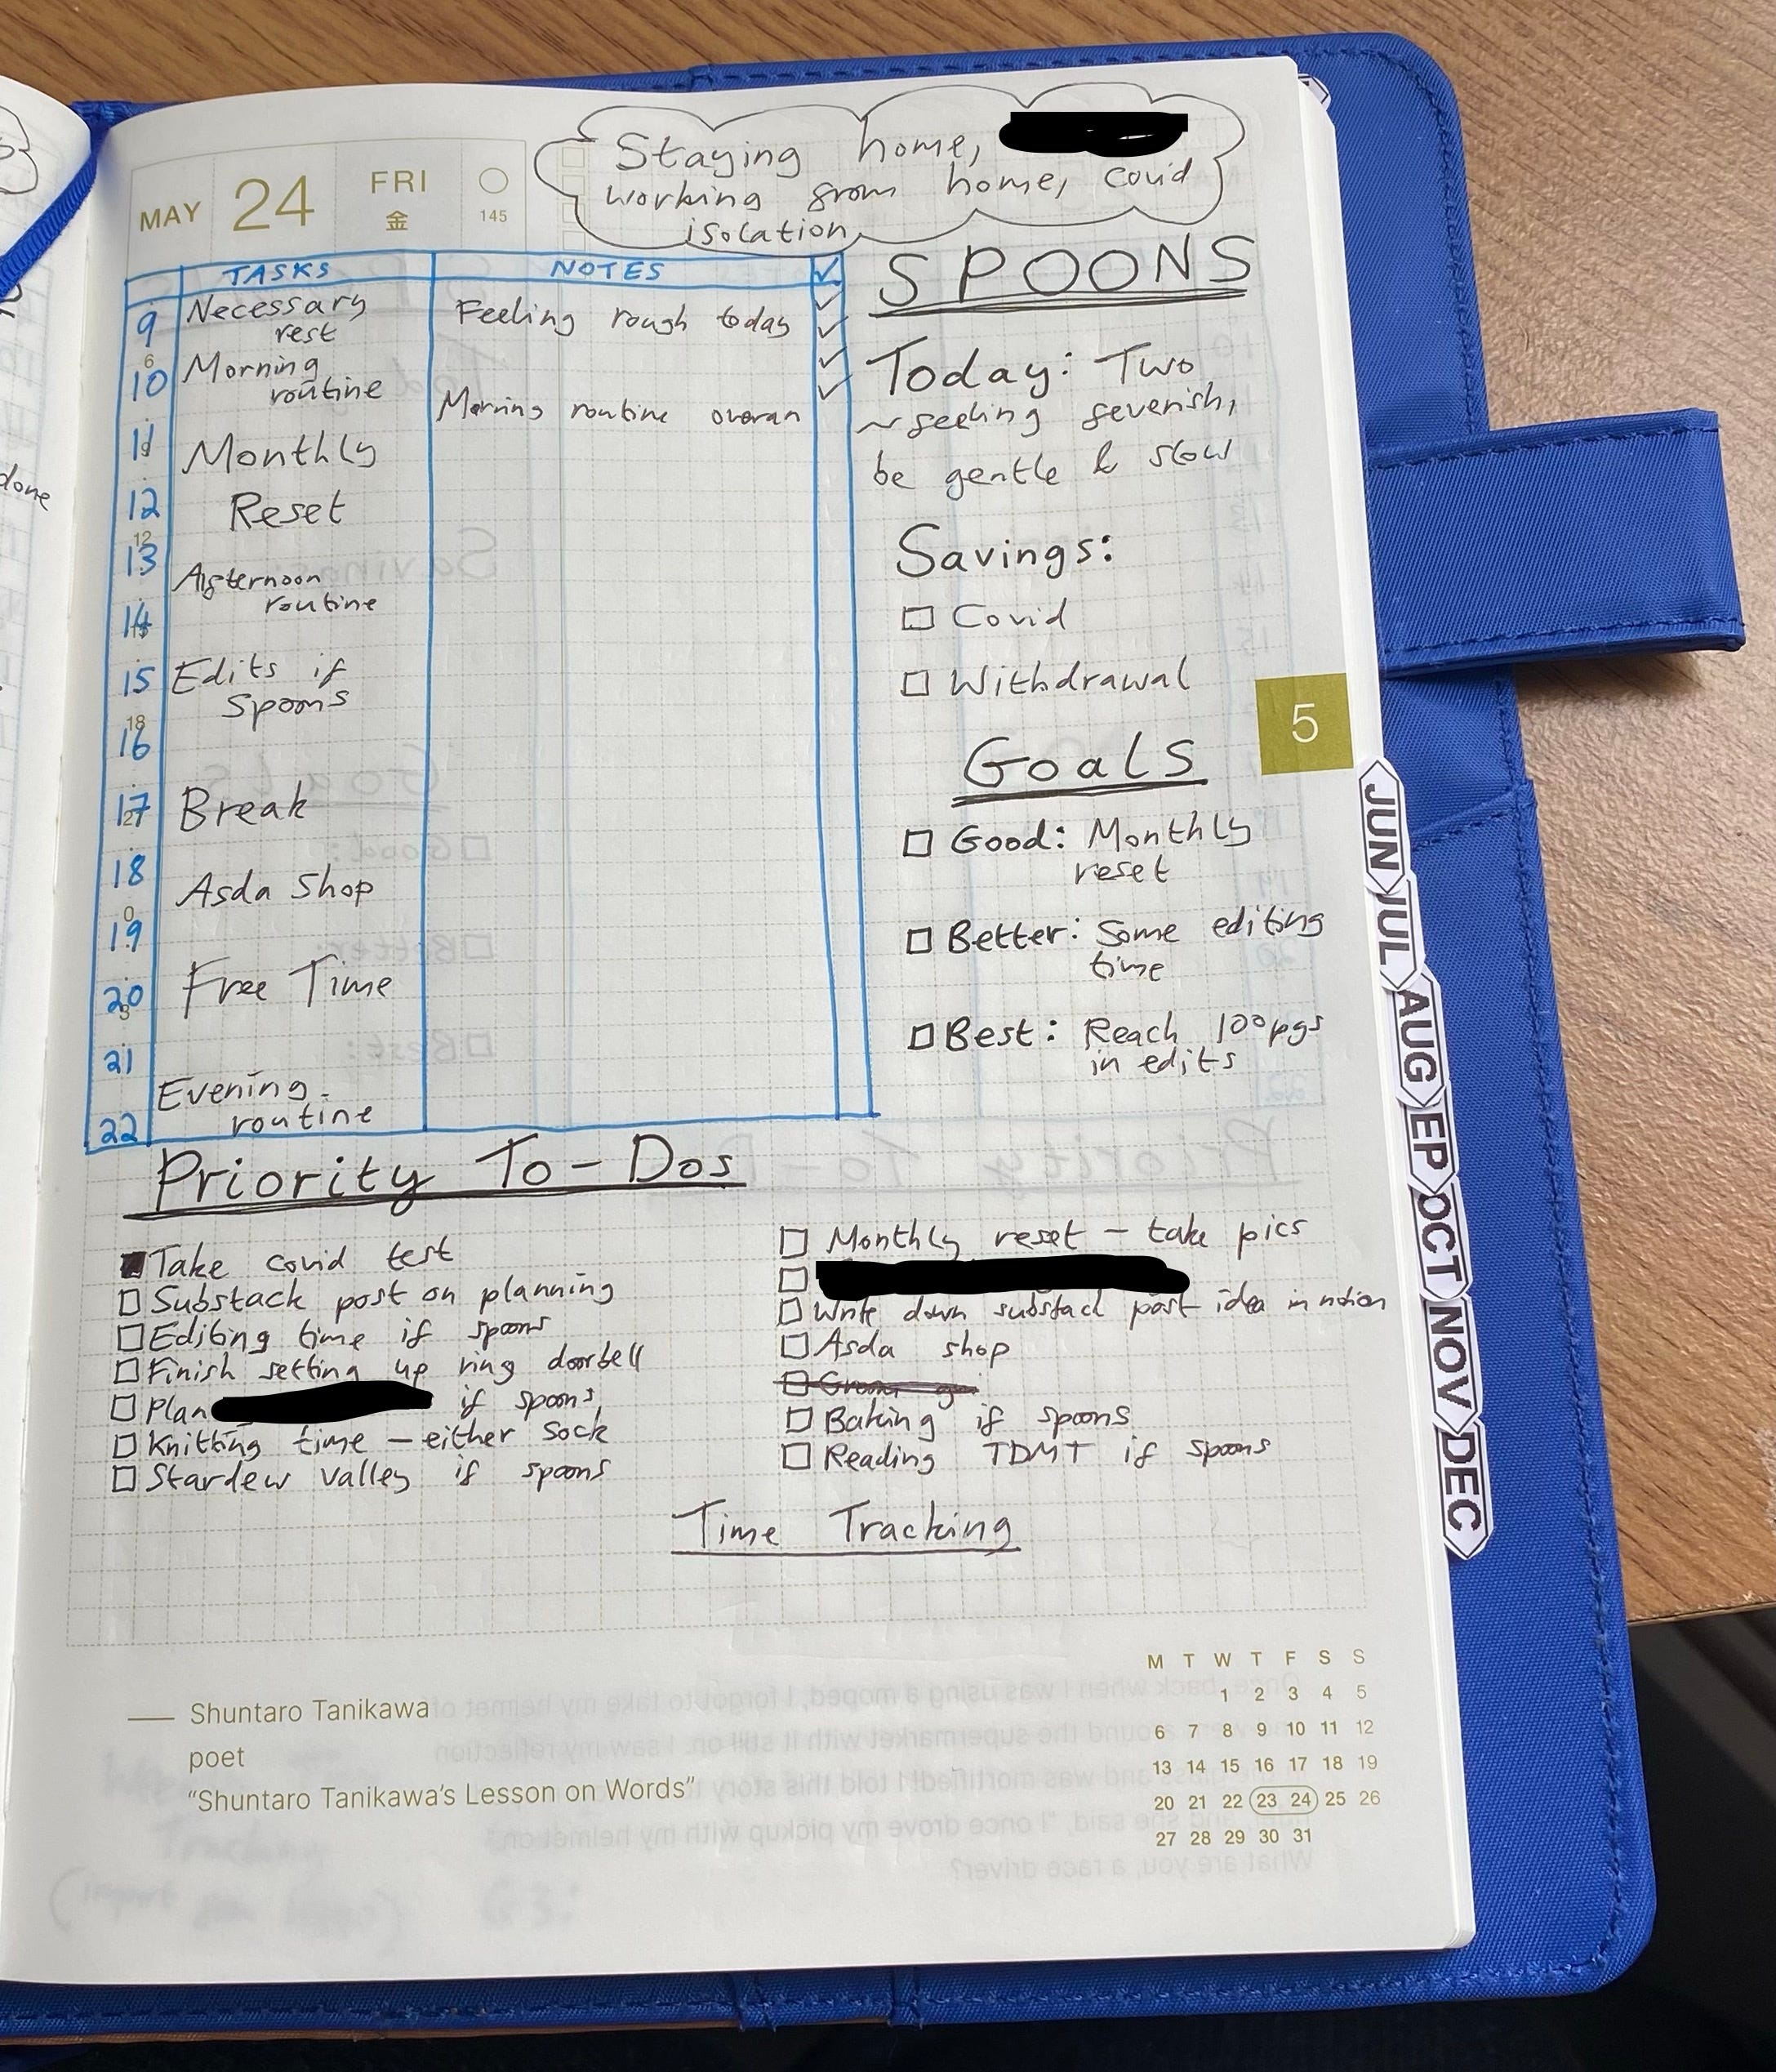 MAY 24 FRI
金 145
Staying home,
working from home, covid
isolation
TASKS NOTES ✓
9 Necessary rest Feeling rough today ✓ ✓
10 Morning routine ✓ ✓
Morning routine overan
11 Monthly
12 Reset
13 Afternoon
14 routine
15 Edits if
spoons
16
17 Break
18 Asda Shop
19
20 Free Time
21
Evening
22 routine
6
9
12
15
18
21
0
3
SPOONS
Today: Two
~feeling feverish,
be gentle & slow
Savings:
☐ Covid
☐ Withdrawal
Goals
☐ Good: Monthly
reset
☐ Better: Some editing
time
☐ Best: Reach 100pgs
in edits
5
Priority To-Dos
■ Take covid test
☐ Substack post on planning
☐ Editing time if spoons
☐ Finish setting up ring doorbell
☐ Plan if spoons
☐ Knitting time – either sock
☐ Stardew Valley if spoons
☐ Monthly reset – take pics
☐
☐ Write down substack post idea in notion
☐ Asda shop
☐ Baking if spoons
☐ Reading TDMT if spoons
Time Tracking
— Shuntaro Tanikawa
poet
“Shuntaro Tanikawa’s Lesson on Words”
M T W T F S S
1 2 3 4 5
6 7 8 9 10 11 12
13 14 15 16 17 18 19
20 21 22 23 24 25 26
27 28 29 30 31
JUN
JUL
AUG
EP
OCT
NOV
DEC
done